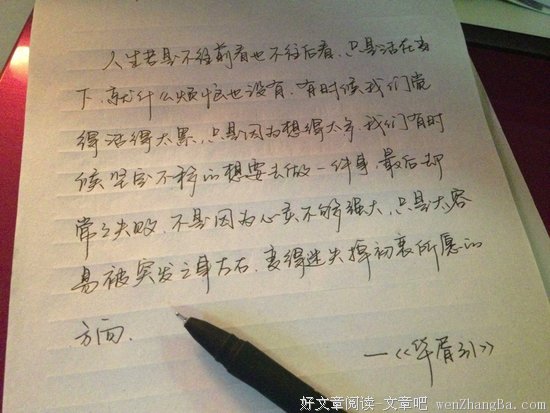 人生若是不往前看也不往后看，只是活在当
下，就什么烦恼也没有，有时候我们觉
得活得太累，只是因为想得太多，我们有时
候坚定不移的想要去做一件事，最后却
常之失败，不是因为心灵不够强大，只是太容
易被突发之事左右，变得迷失掉初衷所愿的
方向．
—《华胥引》
好文章阅读-文章吧 wenZhangBa.com